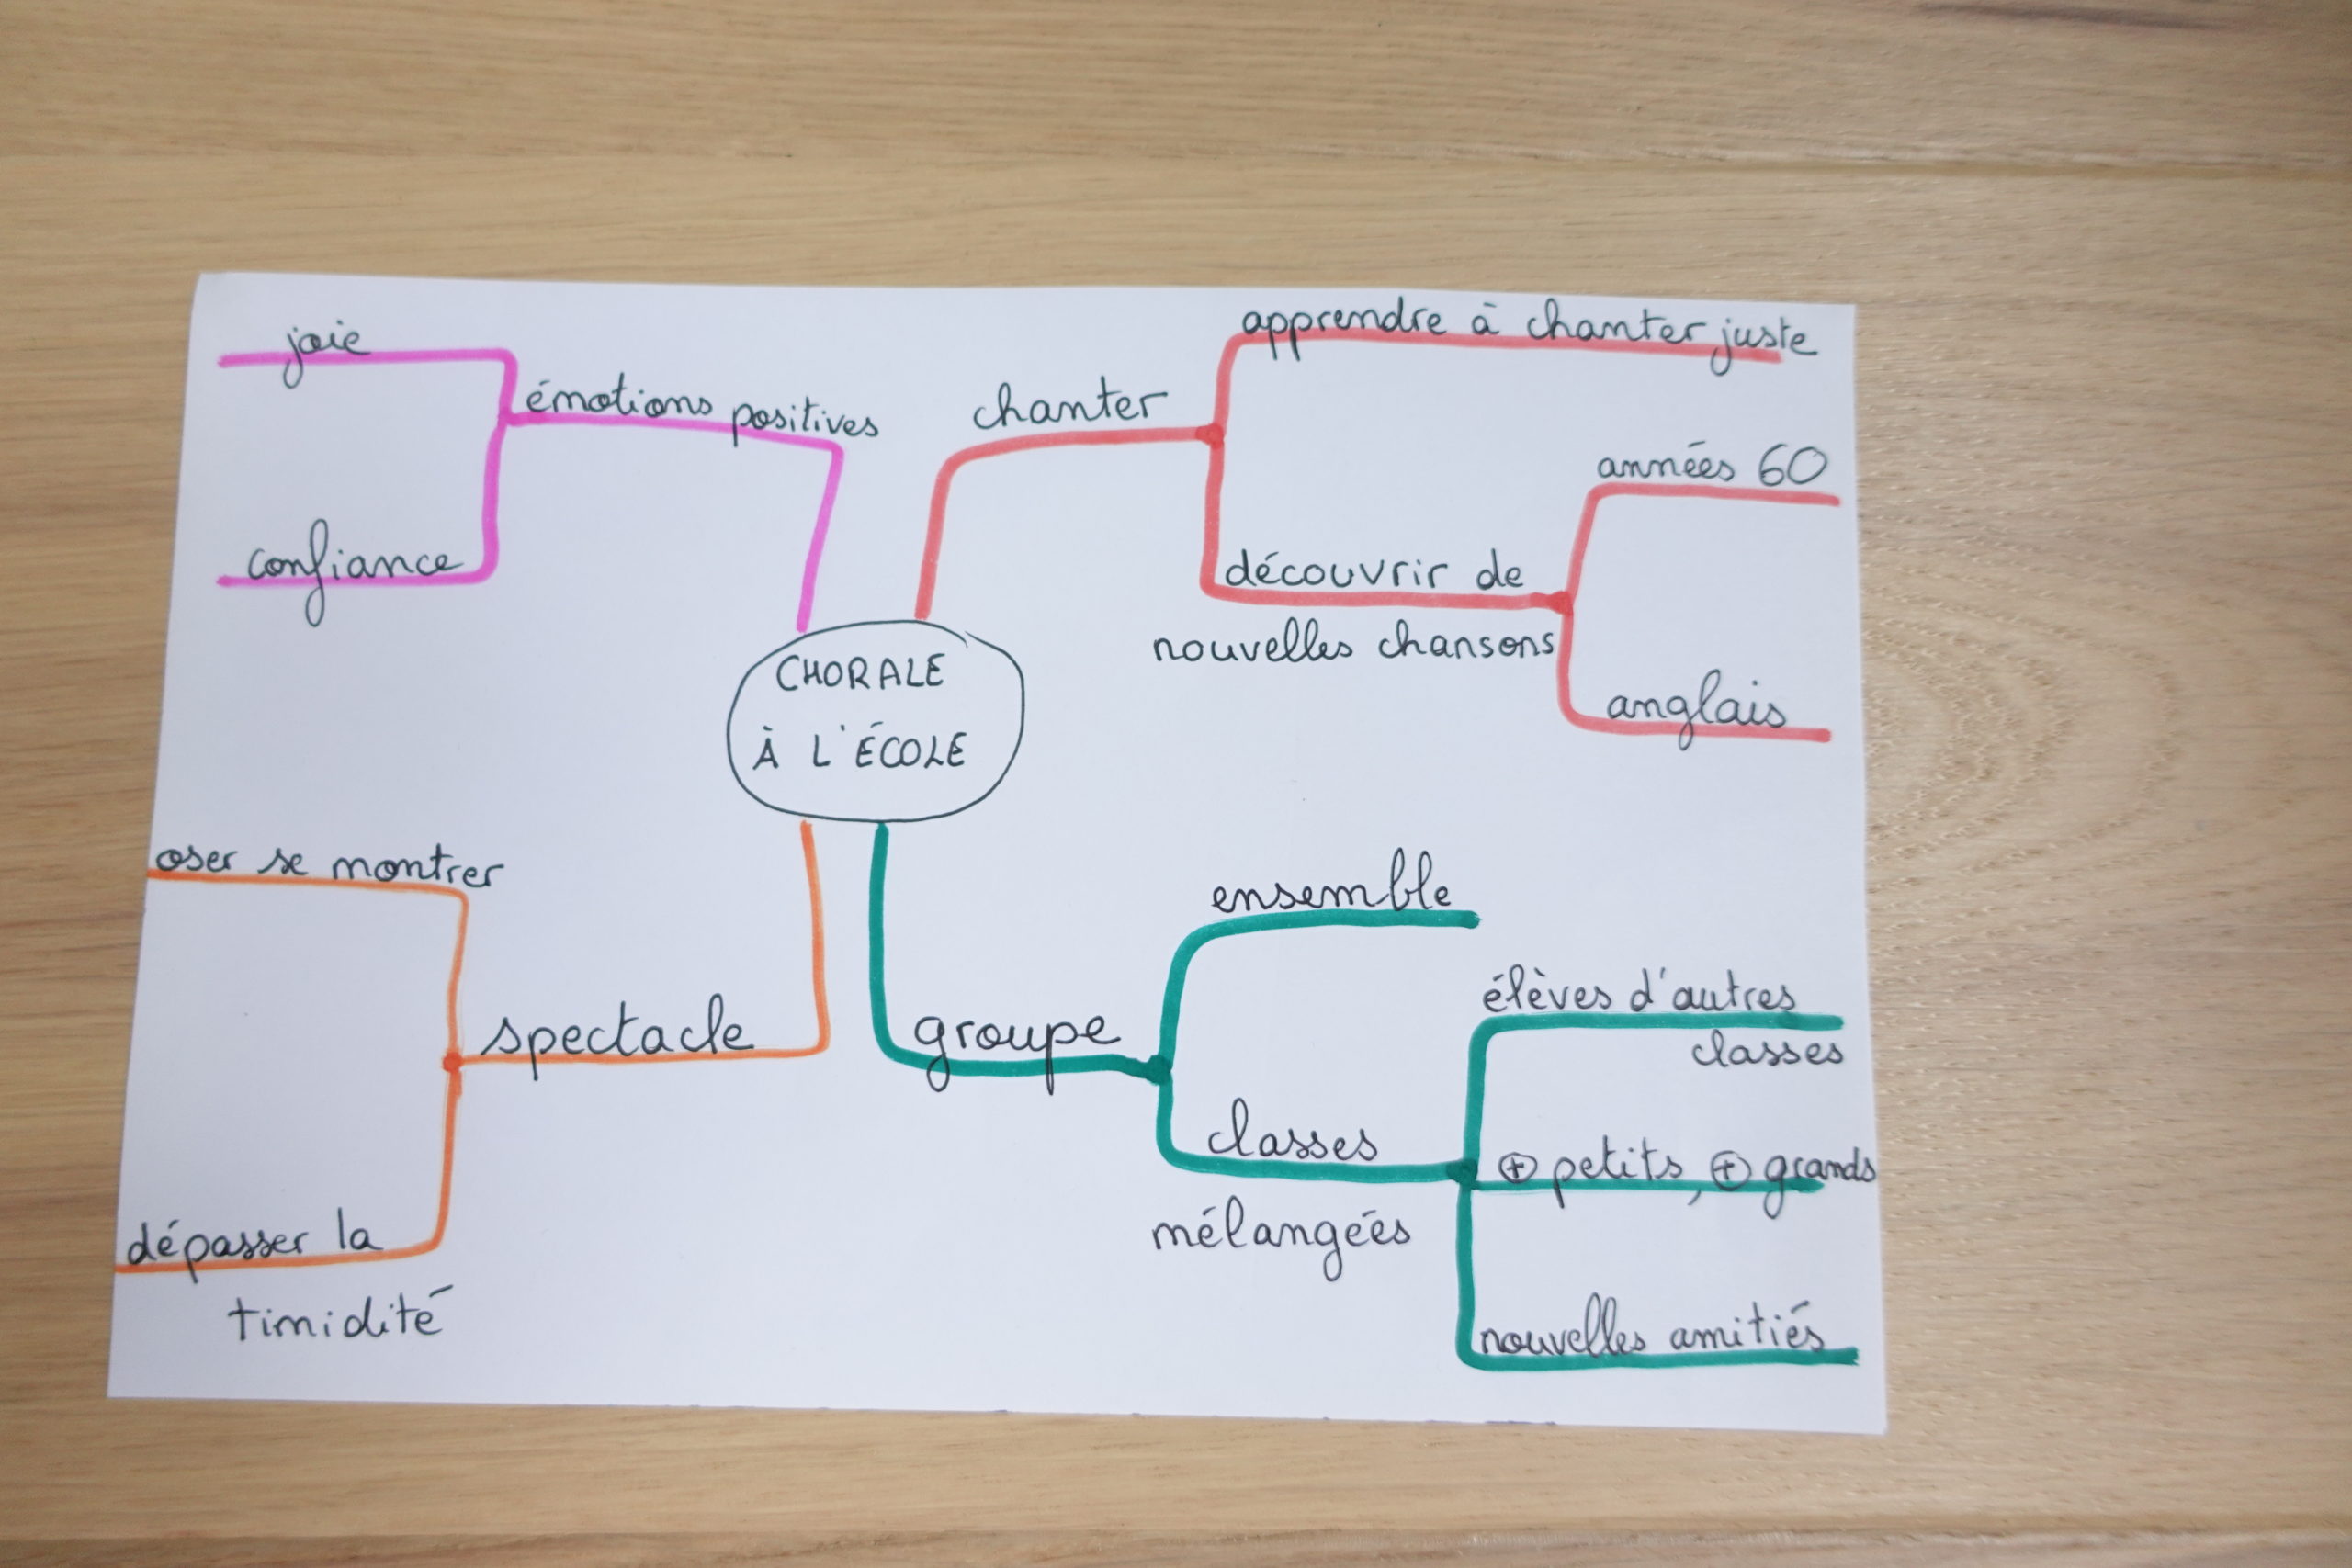 CHORALE
À L'ÉCOLE
émotions positives
joie
confiance
chanter
apprendre à chanter juste
découvrir de
nouvelles chansons
années 60
anglais
groupe
ensemble
classes
mélangées
élèves d'autres
classes
⊕ petits, ⊕ grands
nouvelles amitiés
spectacle
oser se montrer
dépasser la
timidité